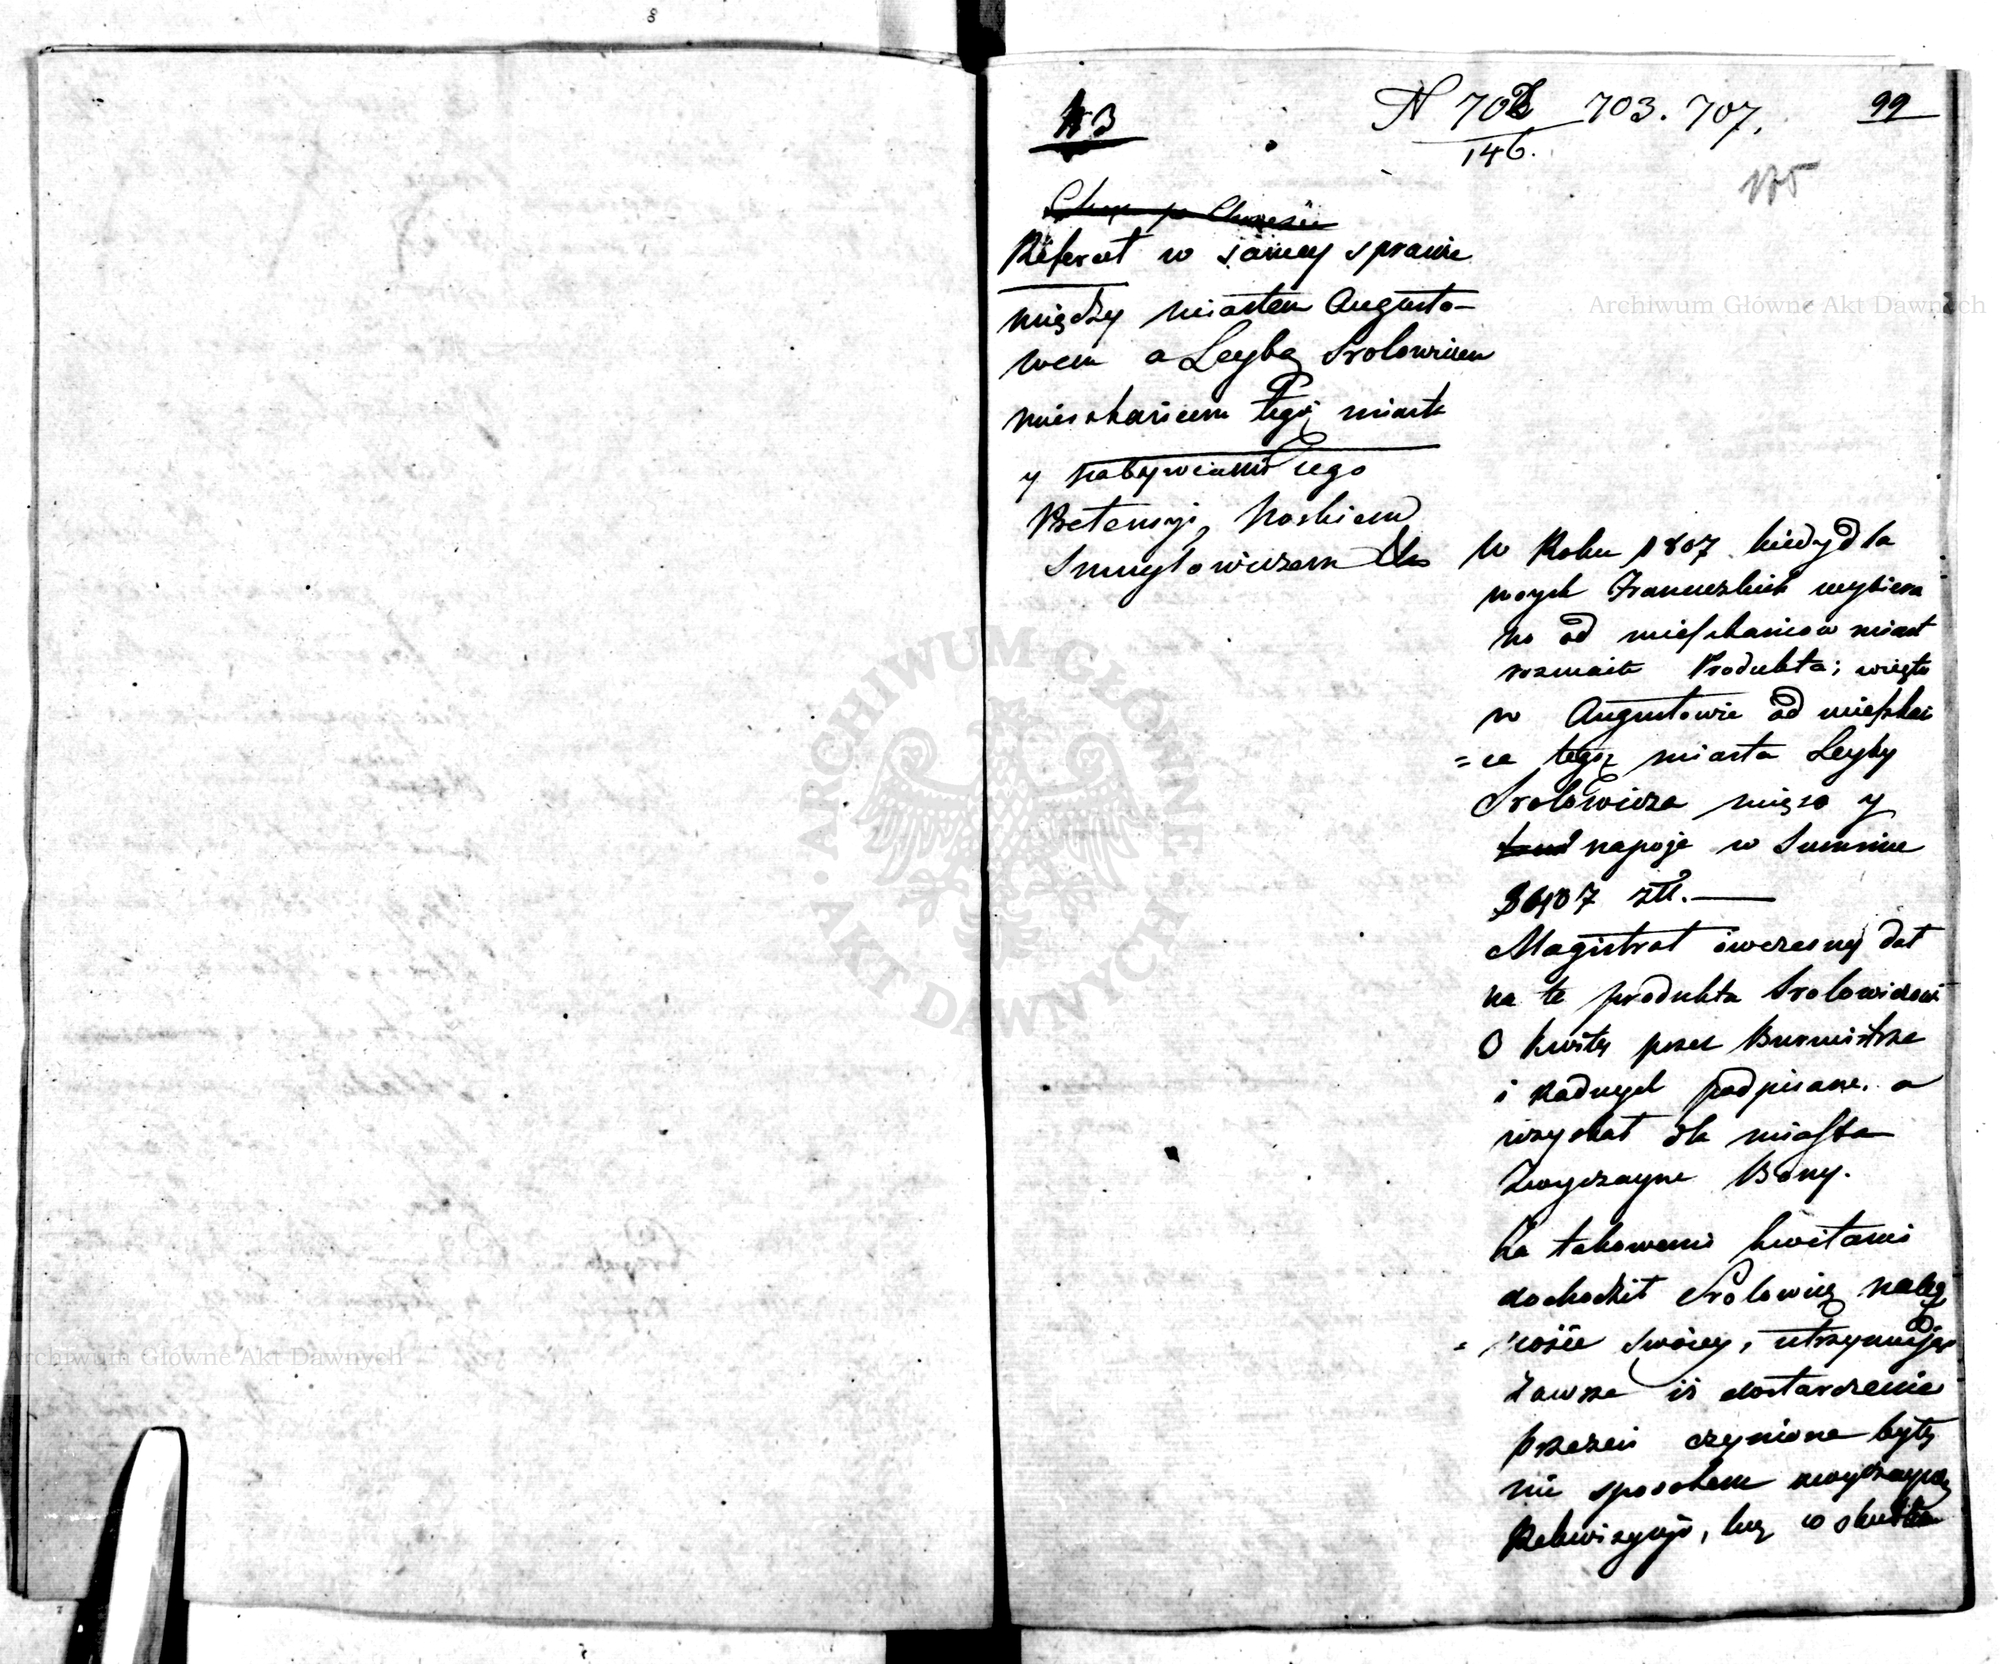 N 702 703. 707.
146.
99
175
N 3
Referat w samey sprawie
między miastem Augusto-
wem a Leybą Srolowiczem
mieszkańcem tegoż miasta
y nabywcami iego
Pretensyi, Noskiem
Smuylowiczem
W Roku 1807 kiedy dla
woysk Francuzkich wybiera
no od mieszkańców miast
rozmaite Produkta; wzięto
w Augustowie od mieszkań
=ca tegoż miasta Leyby
Srolowicza mięso y
napoje w Summie
złl.
Magistrat ówczesny dał
na te produkta Srolowiczowi
3 kwity przez Burmistrza
i Radnych podpisane, a
uzyskał dla miasta
Zwyczayne Bony.
Za takowemi kwitami
dochodził Srolowicz należ
=ności swoiey, utrzymując
zawsze iż dostarczenie
przezeń czynione były
nie sposobem zwyczayney
Rekwizycyi, lecz w skutku
Archiwum Główne Akt Dawnych
Archiwum Główne Akt Dawnych
ARCHIWUM GŁÓWNE AKT DAWNYCH